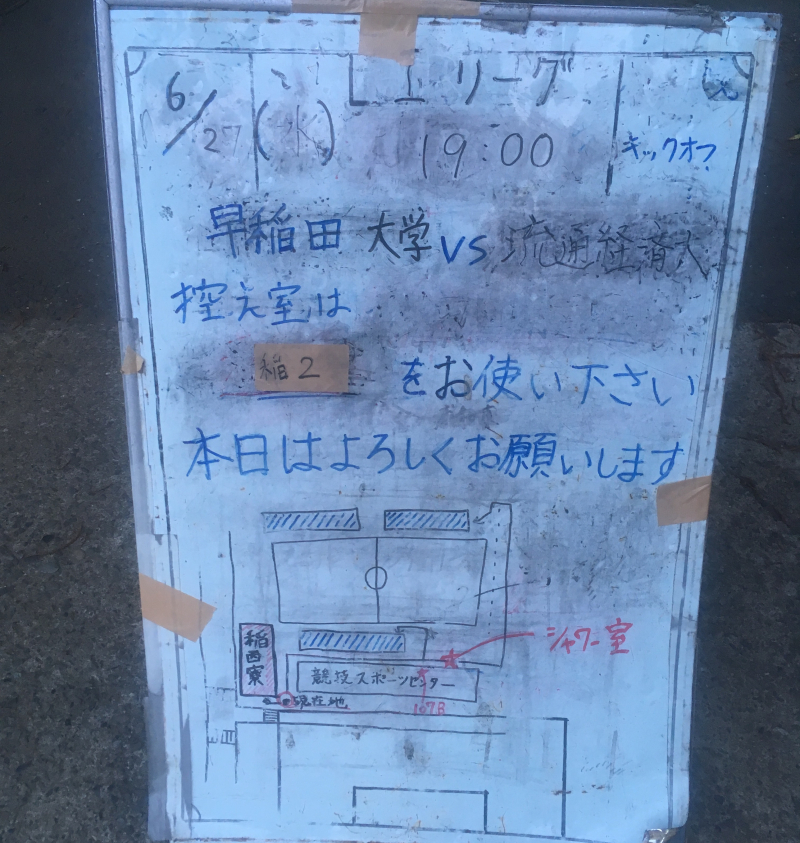 6/27(水) Iリーグ 19:00 キックオフ
早稲田大学 vs 流通経済大
控え室は
稲2 をお使い下さい
本日はよろしくお願いします
シャワー室
稲西寮
競技スポーツセンター
現在地
107B